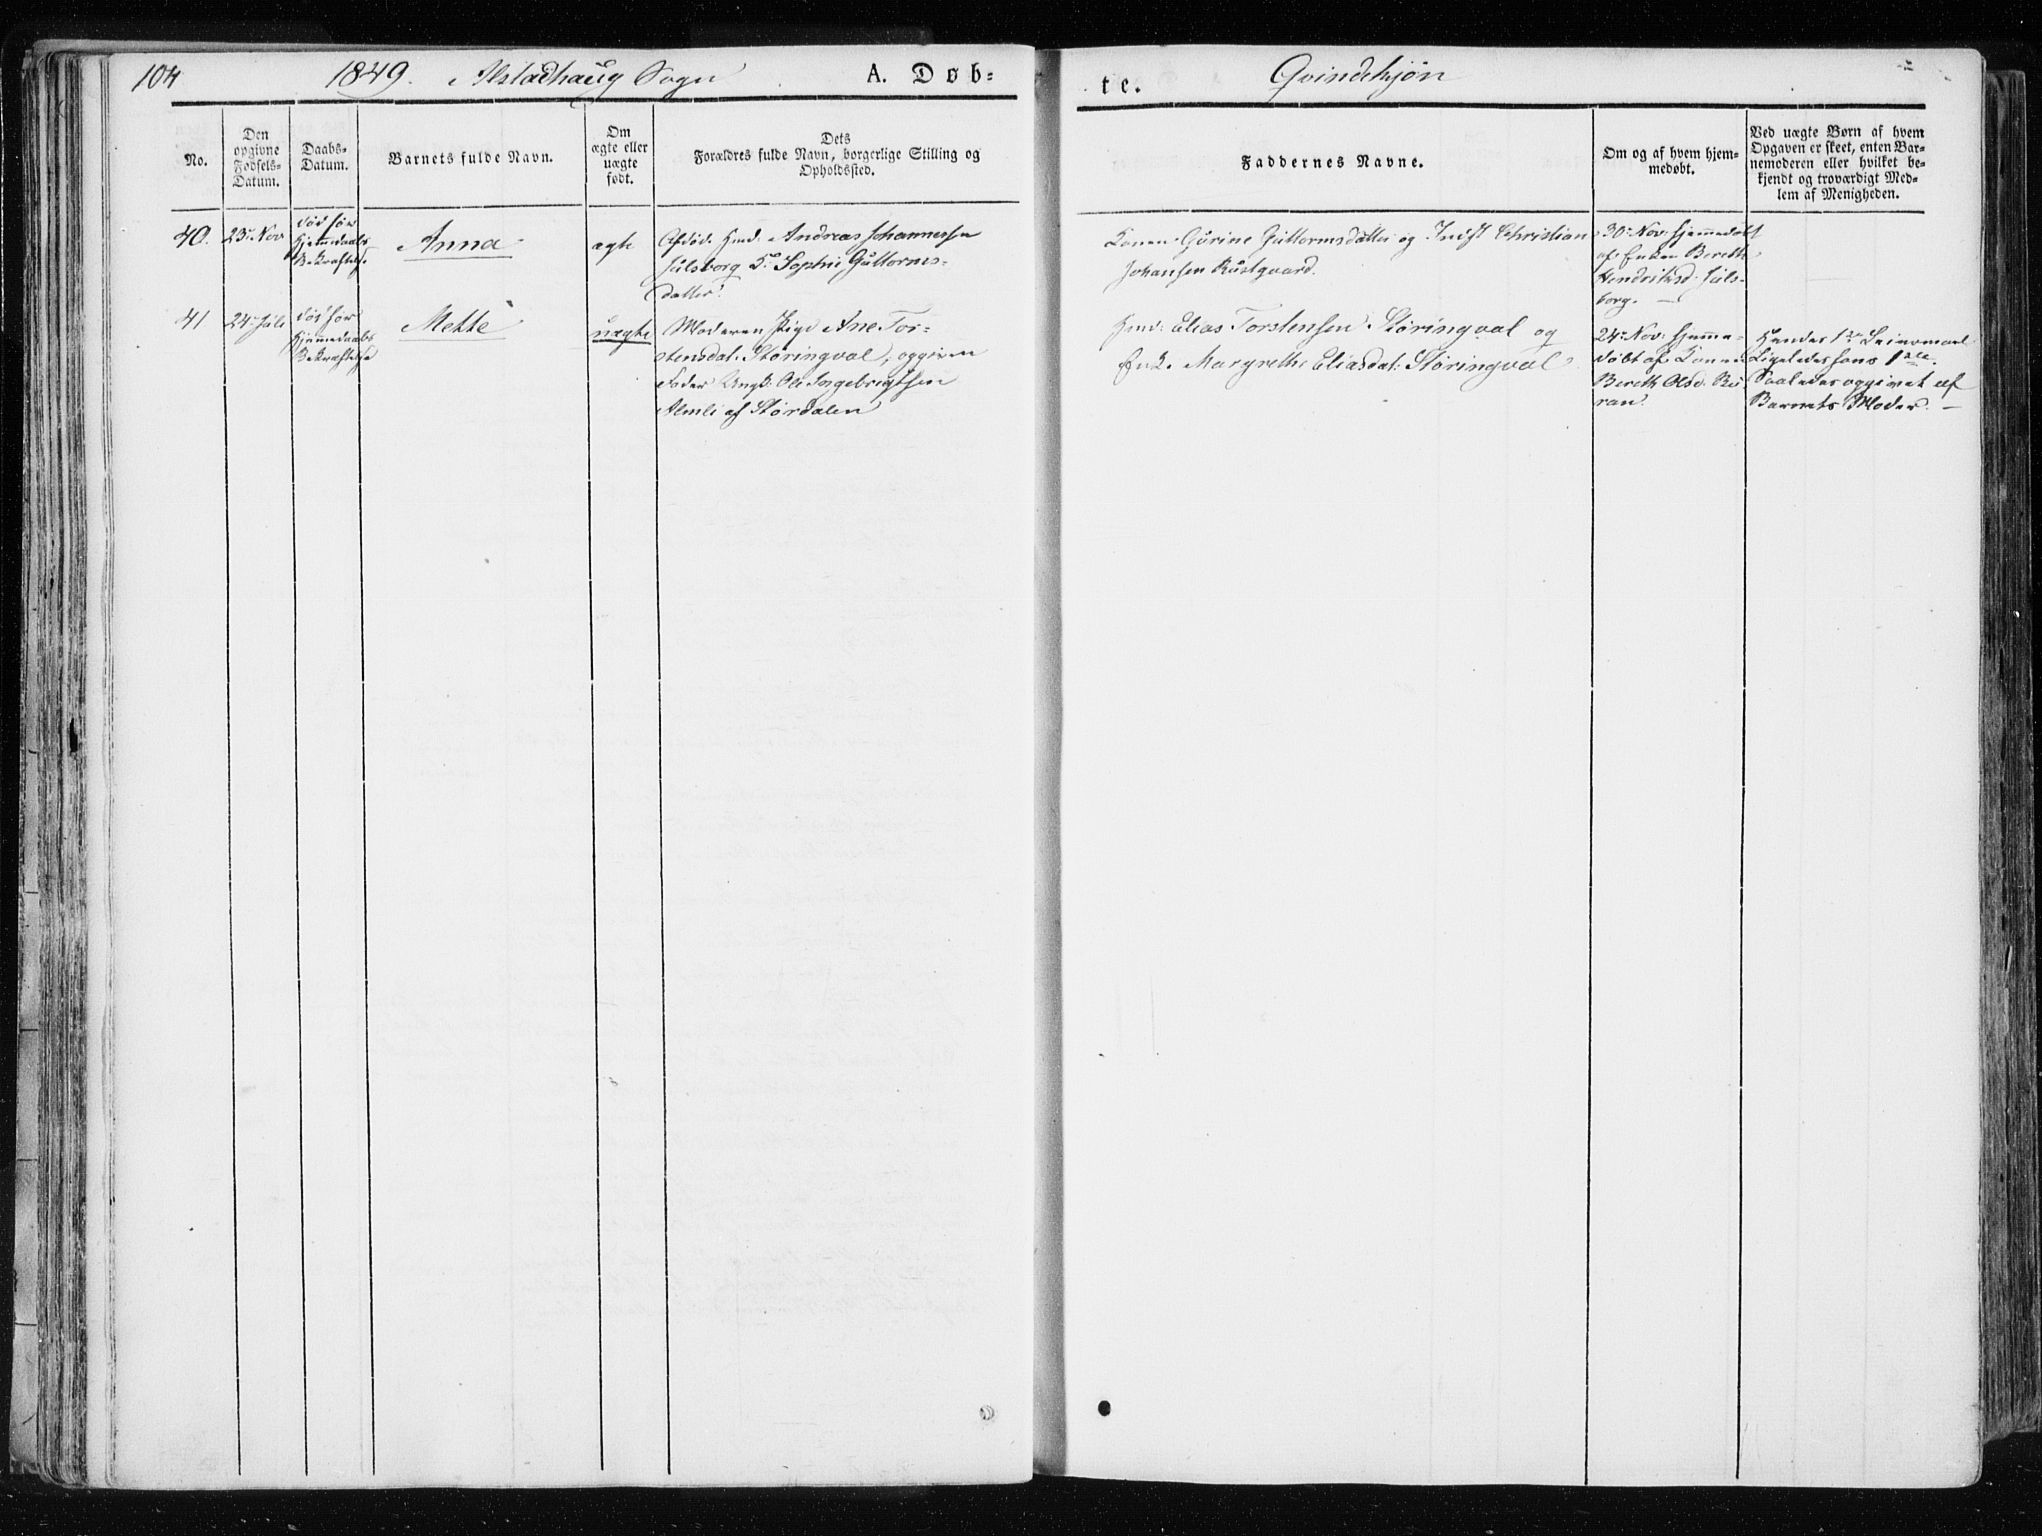 104 1849. Alstadhaug Sogn A. Døb-
te. Qvindekjøn
No.
Den
opgivne
Fødsels-
Datum.
Daabs-
Datum.
Barnets fulde Navn.
Om
ægte eller
uægte
født.
Dets
Forældres fulde Navn, borgerlige Stilling og
Opholdssted.
Faddernes Navne.
Om og af hvem hjem-
medøbt.
Ved uægte Børn af hvem
Opgaven er skeet, enten Bar-
nemoderen eller hvilket be-
kjendt og troværdigt Med-
lem af Menigheden.
40.
23. Nov
død før
Hjemmedaabs
Bekræftelse
Anna
ægte
Afdød. Hmd. Andreas Johannessen
Julsborg Sophie Guttorms-
datter.
Konen Gurine Guttormsdatter og Indst Christian
Johansen Rustgaard.
30. Nov. hjemmedøbt
af Enken Bereth
Hendriksd. Juls-
borg. —
41
24. Juli
død før
Hjemmedaabs
Bekræftelse
Mette
uægte
Moderen Pige Ane Tor-
stensdat. Støringval, opgiven
Fader Ungk. Ole Ingebrigtsen
Almli af Størdalen
Hmd. Elias Torstensen Støringval og
Enk. Margrethe Eliasdat. Støringval
24. Nov. hjemme-
døbt af Konen
Bereth Olsd. By
ran.
Hendes 1ste Leiermaal
Ligeledes hans 1ste
Saaledes opgivet af
Barnets Moder. —